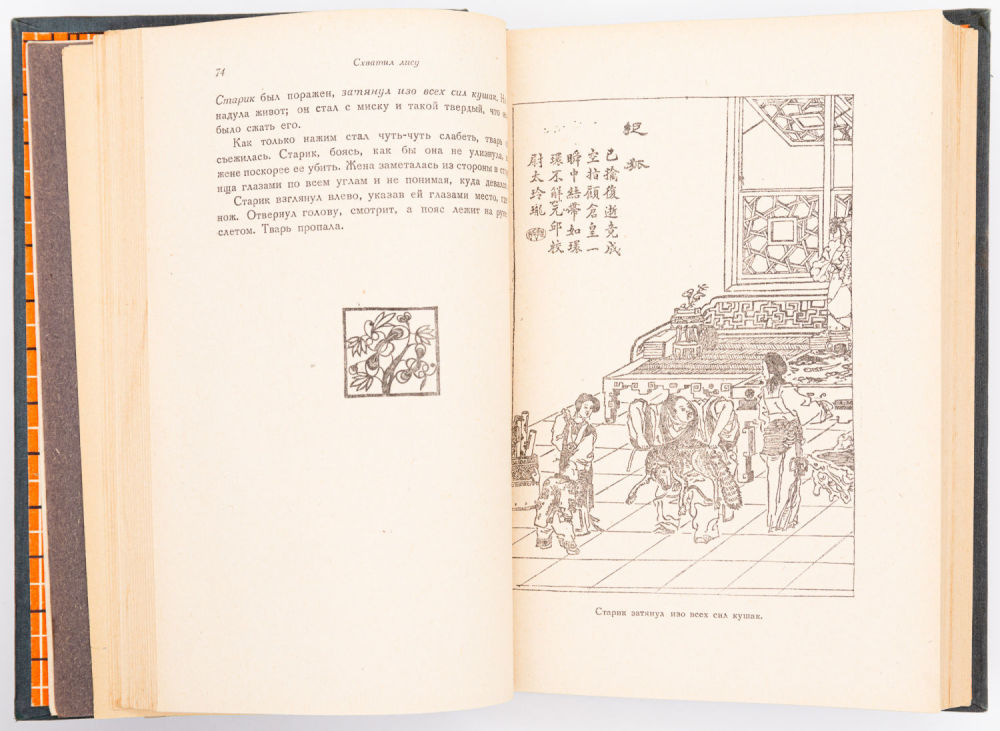 74
Схватил лису
Старик был поражен, затянул изо всех сил кушак.
надула живот; он стал с миску и такой твердый, что
было сжать его.
Как только нажим стал чуть-чуть слабеть, тварь
съежилась. Старик, боясь, как бы она не улизнула,
жене поскорее ее убить. Жена заметалась из стороны в
ища глазами по всем углам и не понимая, куда девался
Старик взглянул влево, указав ей глазами место,
нож. Отвернул голову, смотрит, а пояс лежит на
слетом. Тварь пропала.
捉狐
已擒復逝竟成
空指顧倉皇一
瞬中結帶如環
環不解邱較
尉太玲瓏
Старик затянул изо всех сил кушак.